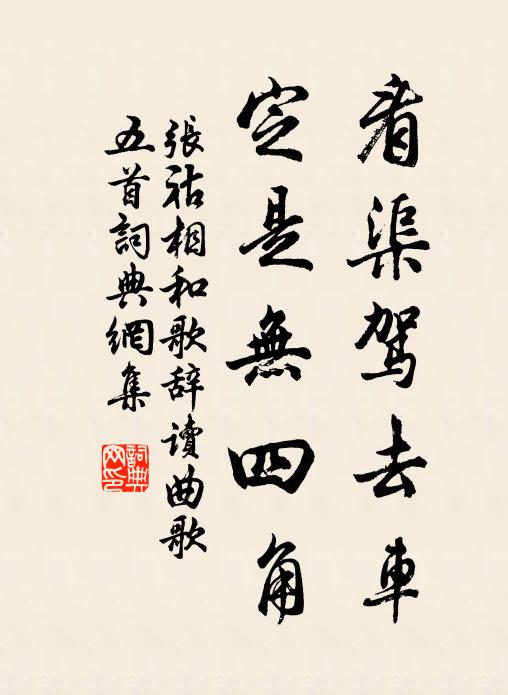 看渠駕去車
定是無四角
張祜相和歌辞讀曲歌
五首詞典網集
詞典
网印